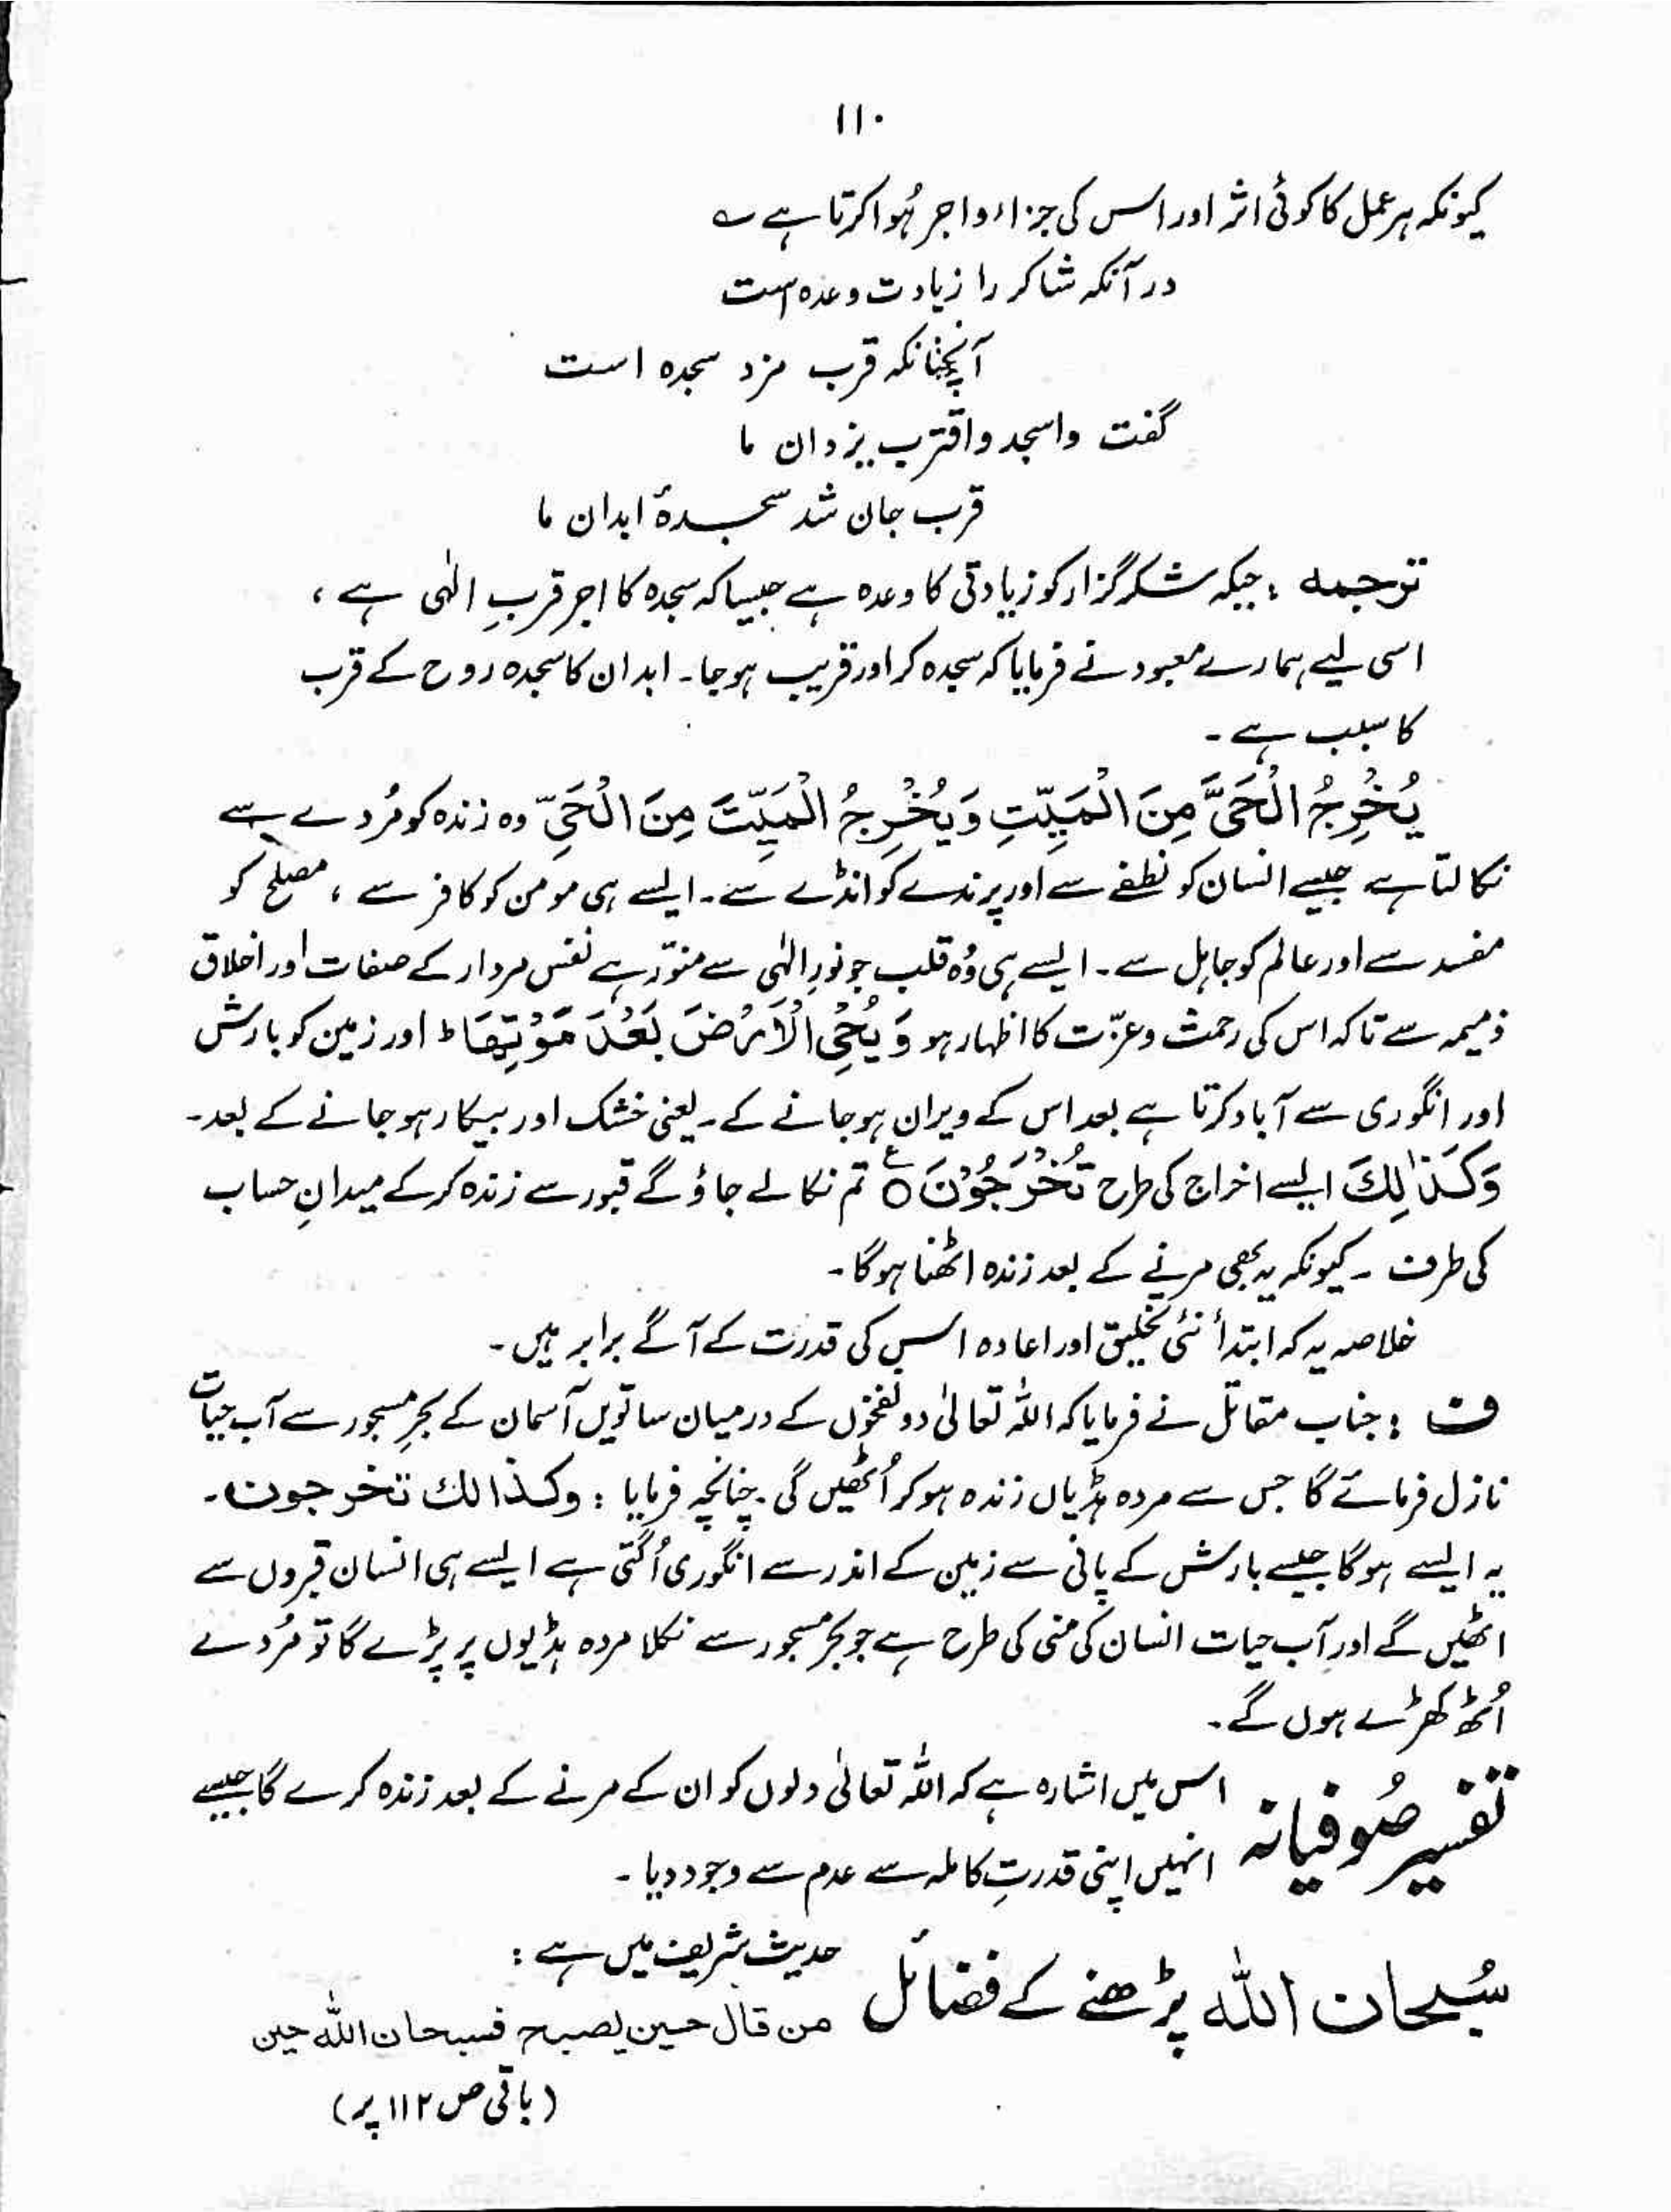 ۱۱۰
کیونکہ ہر عمل کا کوئی اثر اور اس کی جزاء و اجر ہُوا کرتا ہے ؎
در آنکہ شاکر را زیادت وعدہ است
آنچنانکہ قرب مزد سجدہ است
گفت واسجد واقترب یزدان ما
قرب جان شد سجدۂ ابدان ما
ترجمہ : جبکہ شکر گزار کو زیادتی کا وعدہ ہے جیسا کہ سجدہ کا اجر قربِ الٰہی ہے ،
اسی لیے ہمارے معبود نے فرمایا کہ سجدہ کر اور قریب ہوجا۔ ابدان کا سجدہ روح کے قرب
کا سبب ہے ۔
يُخْرِجُ الْحَيَّ مِنَ الْمَيِّتِ وَيُخْرِجُ الْمَيِّتَ مِنَ الْحَيِّ وہ زندہ کو مُردے سے
نکالتا ہے جیسے انسان کو نطفے سے اور پرندے کو انڈے سے ۔ ایسے ہی مومن کو کافر سے ، مصلح کو
مفسد سے اور عالم کو جاہل سے ۔ ایسے ہی وُہ قلب جو نورِ الٰہی سے منوّر ہے نفس مردار کے صفات اور اخلاق
ذمیمہ سے تاکہ اس کی رحمت و عزّت کا اظہار ہو وَ يُحْيِ الْاَرْضَ بَعْدَ مَوْتِهَا ط اور زمین کو بارش
اور انگوری سے آباد کرتا ہے بعد اس کے ویران ہوجانے کے ۔ یعنی خشک اور بیکار ہو جانے کے بعد ۔
وَكَذٰلِكَ ایسے اخراج کی طرح تُخْرَجُوْنَ ۝ ع تم نکالے جاؤ گے قبور سے زندہ کرکے میدانِ حساب
کی طرف ۔ کیونکہ یہ بھی مرنے کے بعد زندہ اٹھنا ہوگا ۔
خلاصہ یہ کہ ابتدأ نئی تخلیق اور اعادہ اس کی قدرت کے آگے برابر ہیں ۔
ف : جناب مقاتل نے فرمایا کہ اللہ تعالیٰ دو نفخوں کے درمیان ساتویں آسمان کے بحرِ مسجور سے آب حیات
نازل فرمائے گا جس سے مردہ ہڈیاں زندہ ہو کر اُٹھیں گی ۔ چنانچہ فرمایا : وکذالك تخرجون ۔
یہ ایسے ہوگا جیسے بارش کے پانی سے زمین کے اندر سے انگوری اُگتی ہے ایسے ہی انسان قبروں سے
اٹھیں گے اور آب حیات انسان کی منی کی طرح ہے جو بحر مسجور سے نکلا مردہ ہڈیوں پر پڑے گا تو مُردے
اُٹھ کھڑے ہوں گے ۔
تفسیر صُوفیانہ اس میں اشارہ ہے کہ اللہ تعالیٰ دلوں کو ان کے مرنے کے بعد زندہ کرے گا جیسے
انہیں اپنی قدرتِ کاملہ سے عدم سے وجود دیا ۔
سُبحان اللہ پڑھنے کے فضائل حدیث شریف میں ہے :
من قال حسین یصبح فسبحان اللہ حین
(باقی ص ۱۱۲ پر)